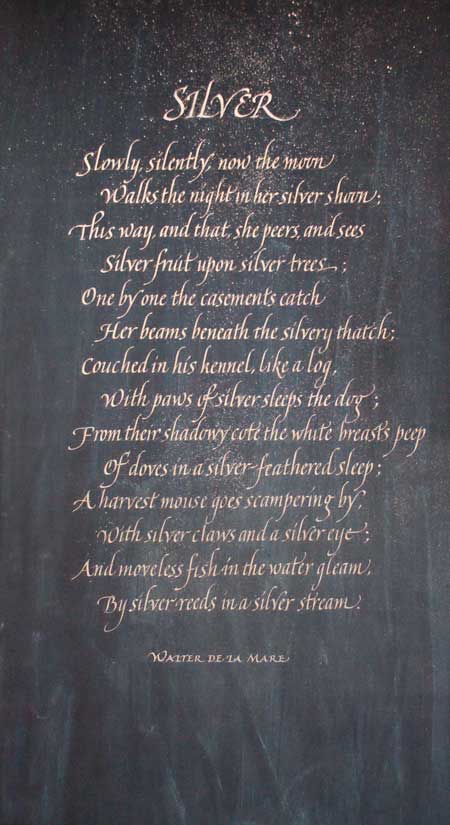 SILVER
Slowly, silently, now the moon
Walks the night in her silver shoon;
This way, and that, she peers, and sees
Silver fruit upon silver trees;
One by one the casements catch
Her beams beneath the silvery thatch;
Couched in his kennel, like a log,
With paws of silver sleeps the dog;
From their shadowy cote the white breasts peep
Of doves in a silver-feathered sleep;
A harvest mouse goes scampering by,
With silver claws and a silver eye;
And moveless fish in the water gleam,
By silver reeds in a silver stream.
WALTER DE LA MARE